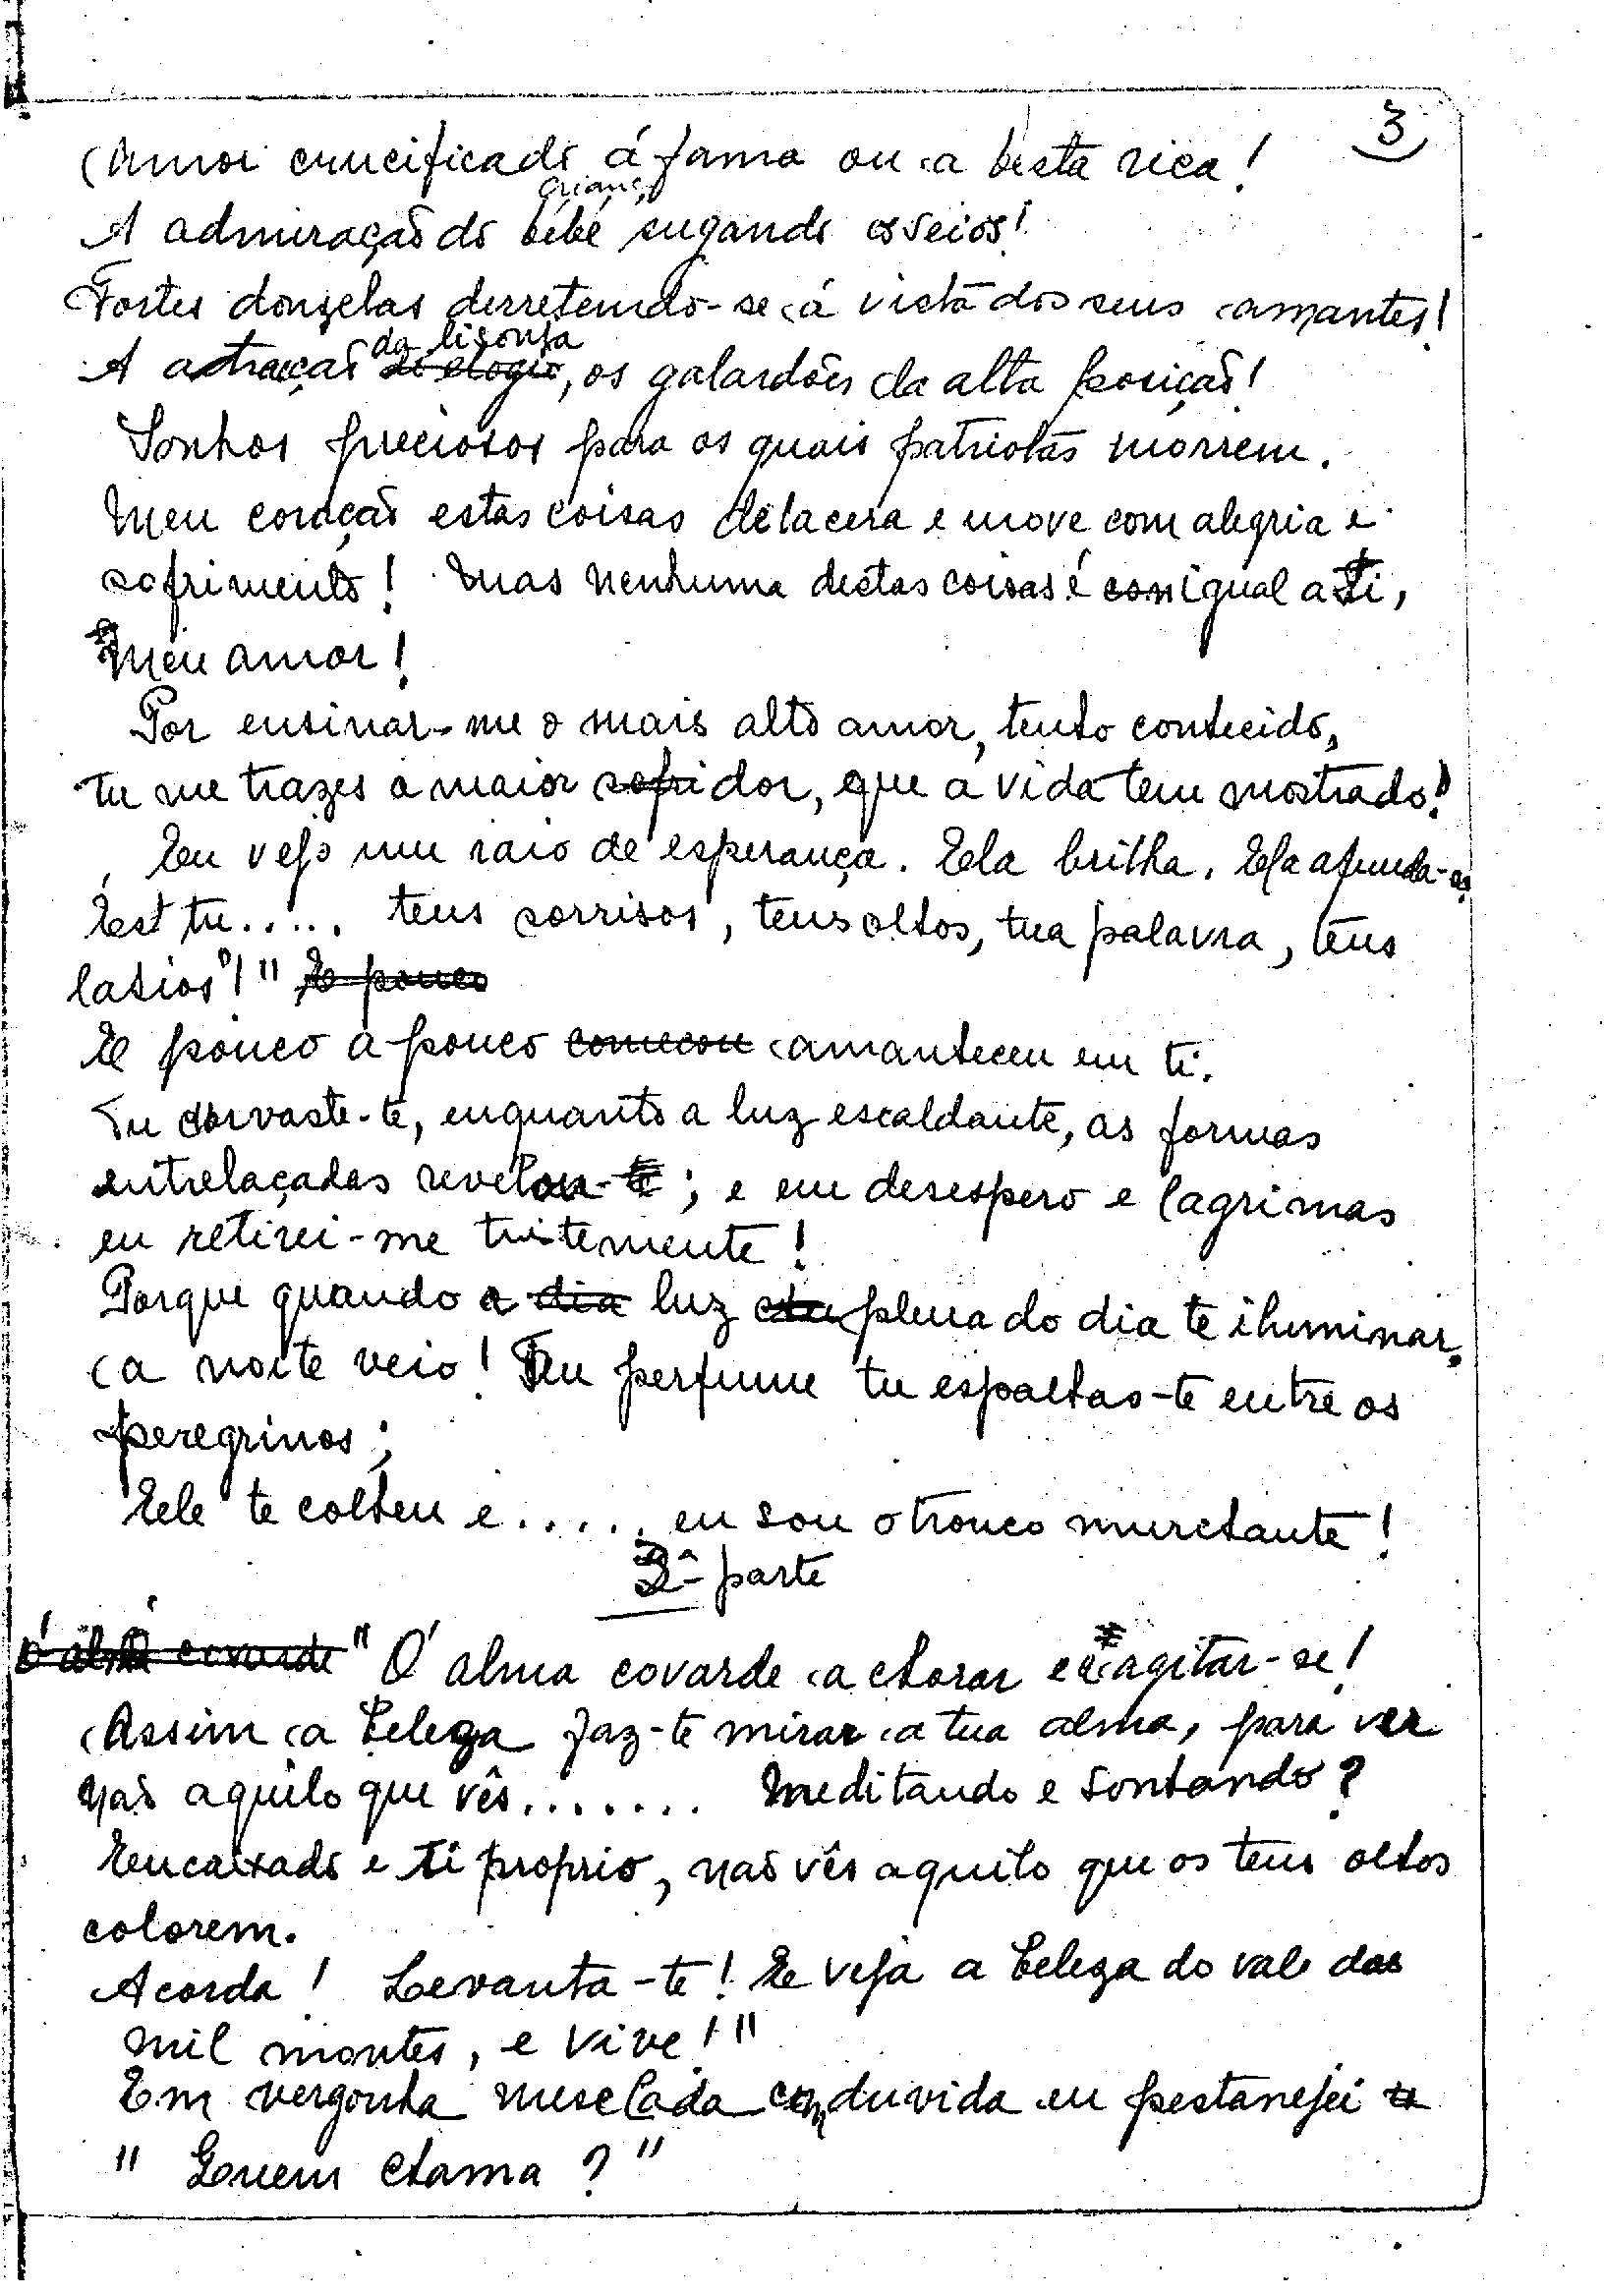 3
Amor crucificado á fama ou a besta rica!
criança
A admiração do bébé sugando os seios!
Fortes donzelas derretendo-se á vista dos seus amantes!
da lisonja
A atracção do elogio, os galardões da alta posição!
Sonhos preciosos para os quais patriotas morrem.
Meu coração estas coisas delacera e move com alegria e
sofrimento! Mas nenhuma destas coisas é com igual a Ti,
Meu amor!
Por ensinar-me o mais alto amor, tenho conhecido,
tu me trazes a maior sofri dor, que a vida tem mostrado!
Eu vejo um raio de esperança. Ela brilha. Ela afunda-as
Est tu..... teus sorrisos, teus olhos, tua palavra, teus
labios"!" E pouco
E pouco a pouco começou amanheceu em ti.
Tu corvaste-te, enquanto a luz escaldante, as formas
entrelaçadas revelou-te; e em desespero e lagrimas
eu retirei-me tristemente!
Porque quando a dia luz plena do dia te iluminar,
a noite veio! Teu perfume tu espalhas-te entre os
peregrinos;
Ele te colheu e..... eu sou o tronco murchante!
2ª parte
Ó alma covarde "Ó alma covarde a chorar e a agitar-se!
Assim a beleza faz-te mirar a tua alma, para ver
não aquilo que vês....... Meditando e sonhando?
Encaixado e ti proprio, não vês aquilo que os teus olhos
colorem.
Acorda! Levanta-te! E veja a beleza do vale das
mil montes, e vive!"
Em vergonha mesclada com duvida eu pestanejei
"Quem chama?"